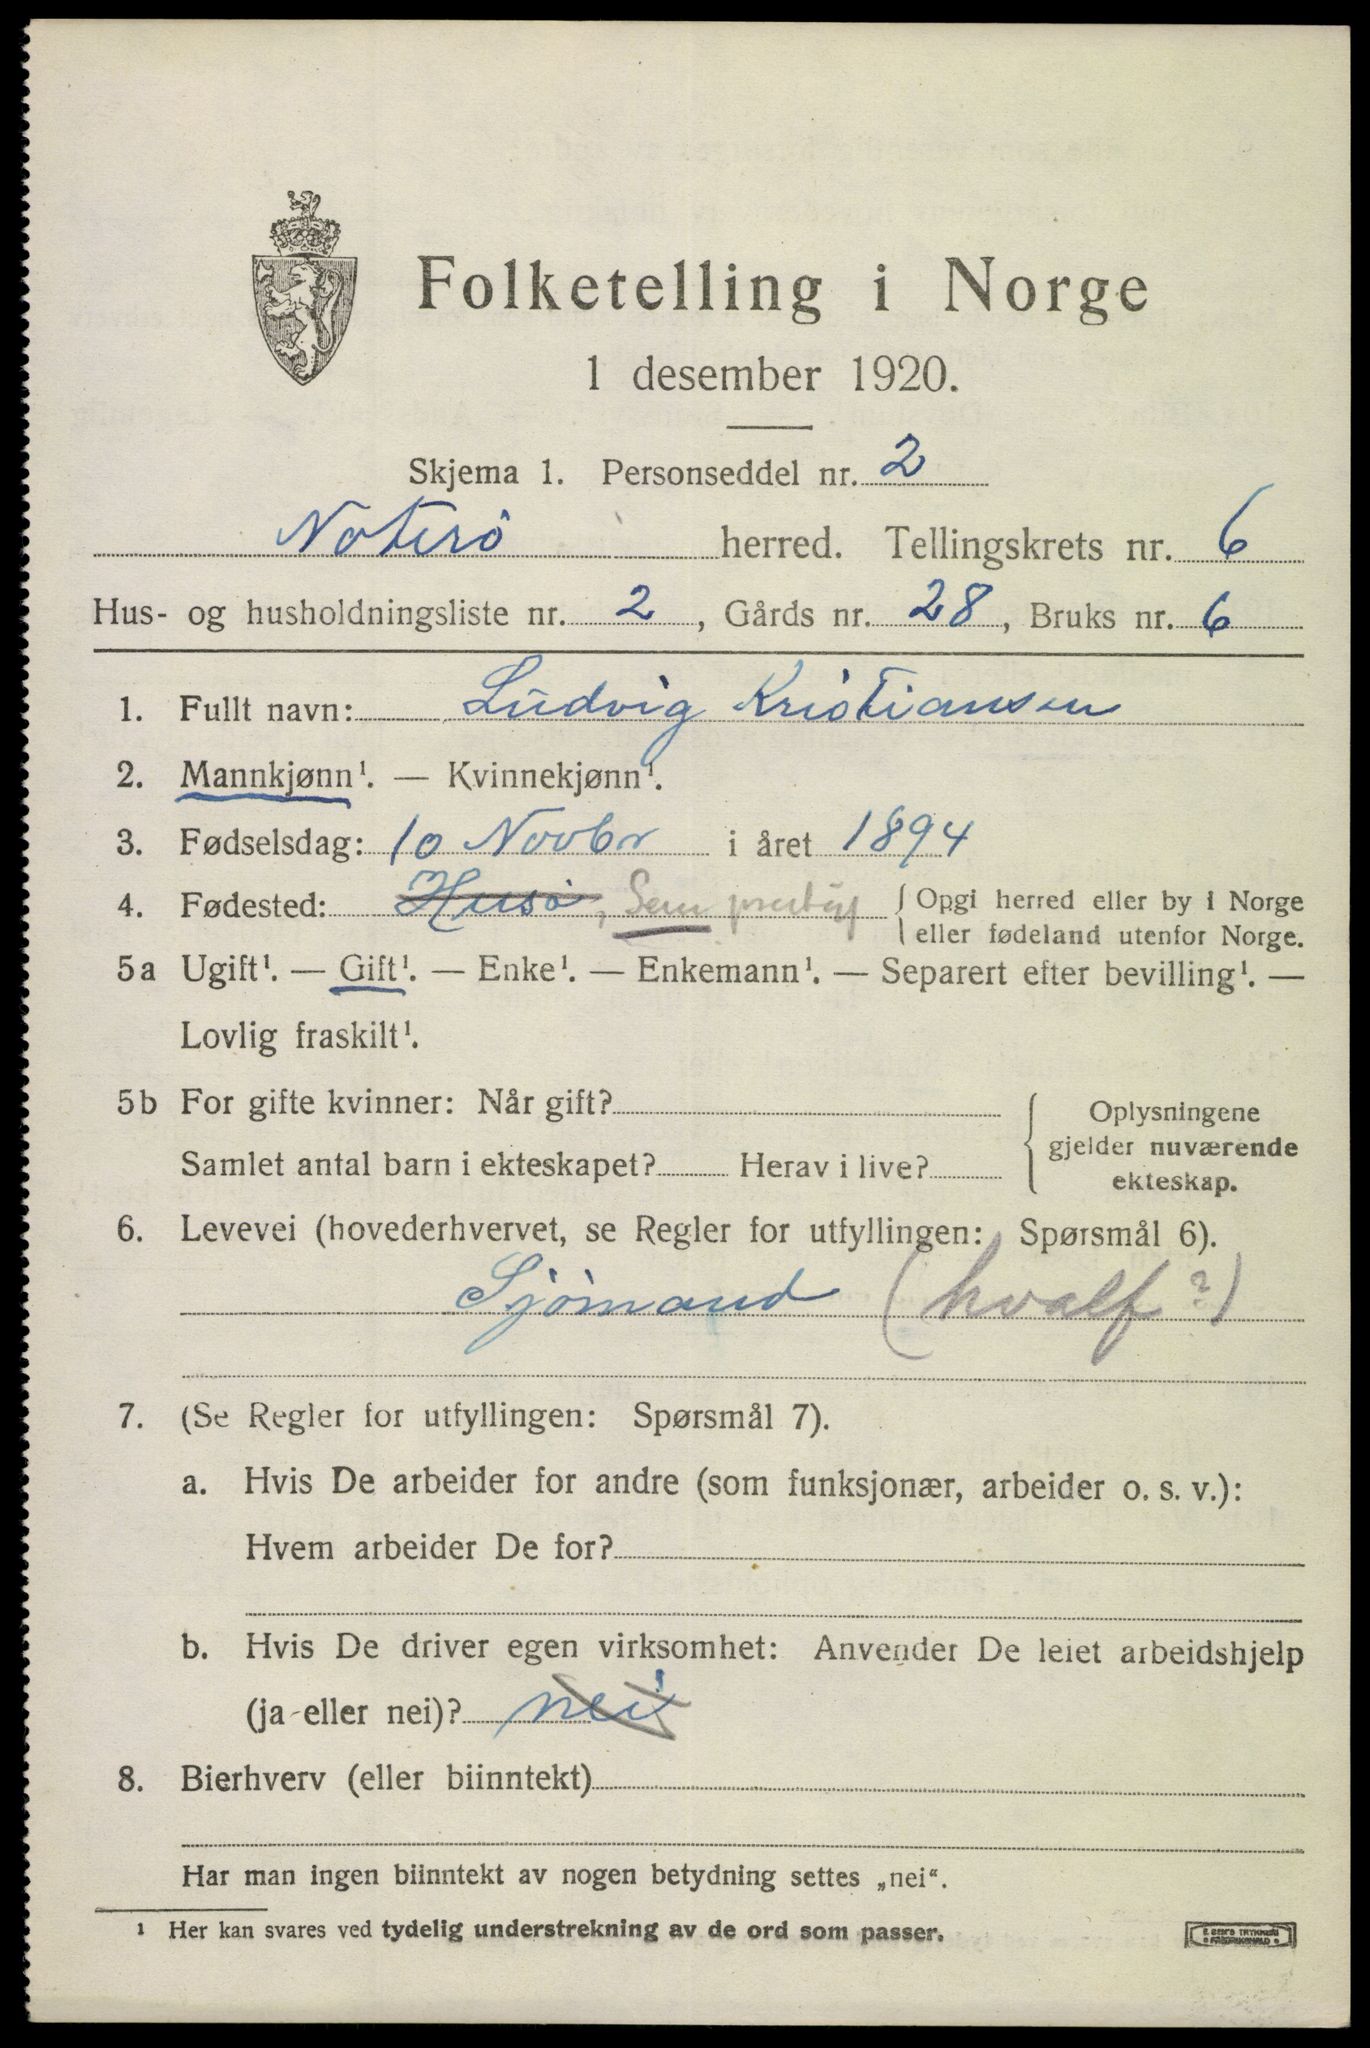 Folketelling i Norge
1 desember 1920.
Skjema 1. Personseddel nr. 2
Noterö herred. Tellingskrets nr. 6
Hus- og husholdningsliste nr. 2, Gårds nr. 28, Bruks nr. 6
1. Fullt navn: Ludvig Kristiansen
2. Mannkjønn¹. — Kvinnekjønn¹.
3. Fødselsdag: 10 Novbr i året 1894
4. Fødested: Husö, Sem { Opgi herred eller by i Norge
eller fødeland utenfor Norge.
5a Ugift¹. — Gift¹. — Enke¹. — Enkemann¹. — Separert efter bevilling¹. —
Lovlig fraskilt¹.
5b For gifte kvinner: Når gift? { Oplysningene
gjelder nuværende
Samlet antal barn i ekteskapet? Herav i live?
ekteskap.
6. Levevei (hovederhvervet, se Regler for utfyllingen: Spørsmål 6).
Sjömand (hvalf?)
7. (Se Regler for utfyllingen: Spørsmål 7).
a. Hvis De arbeider for andre (som funksjonær, arbeider o. s. v.):
Hvem arbeider De for?
b. Hvis De driver egen virksomhet: Anvender De leiet arbeidshjelp
(ja eller nei)? nei
8. Bierhverv (eller biinntekt)
Har man ingen biinntekt av nogen betydning settes „nei“.
¹ Her kan svares ved tydelig understrekning av de ord som passer.